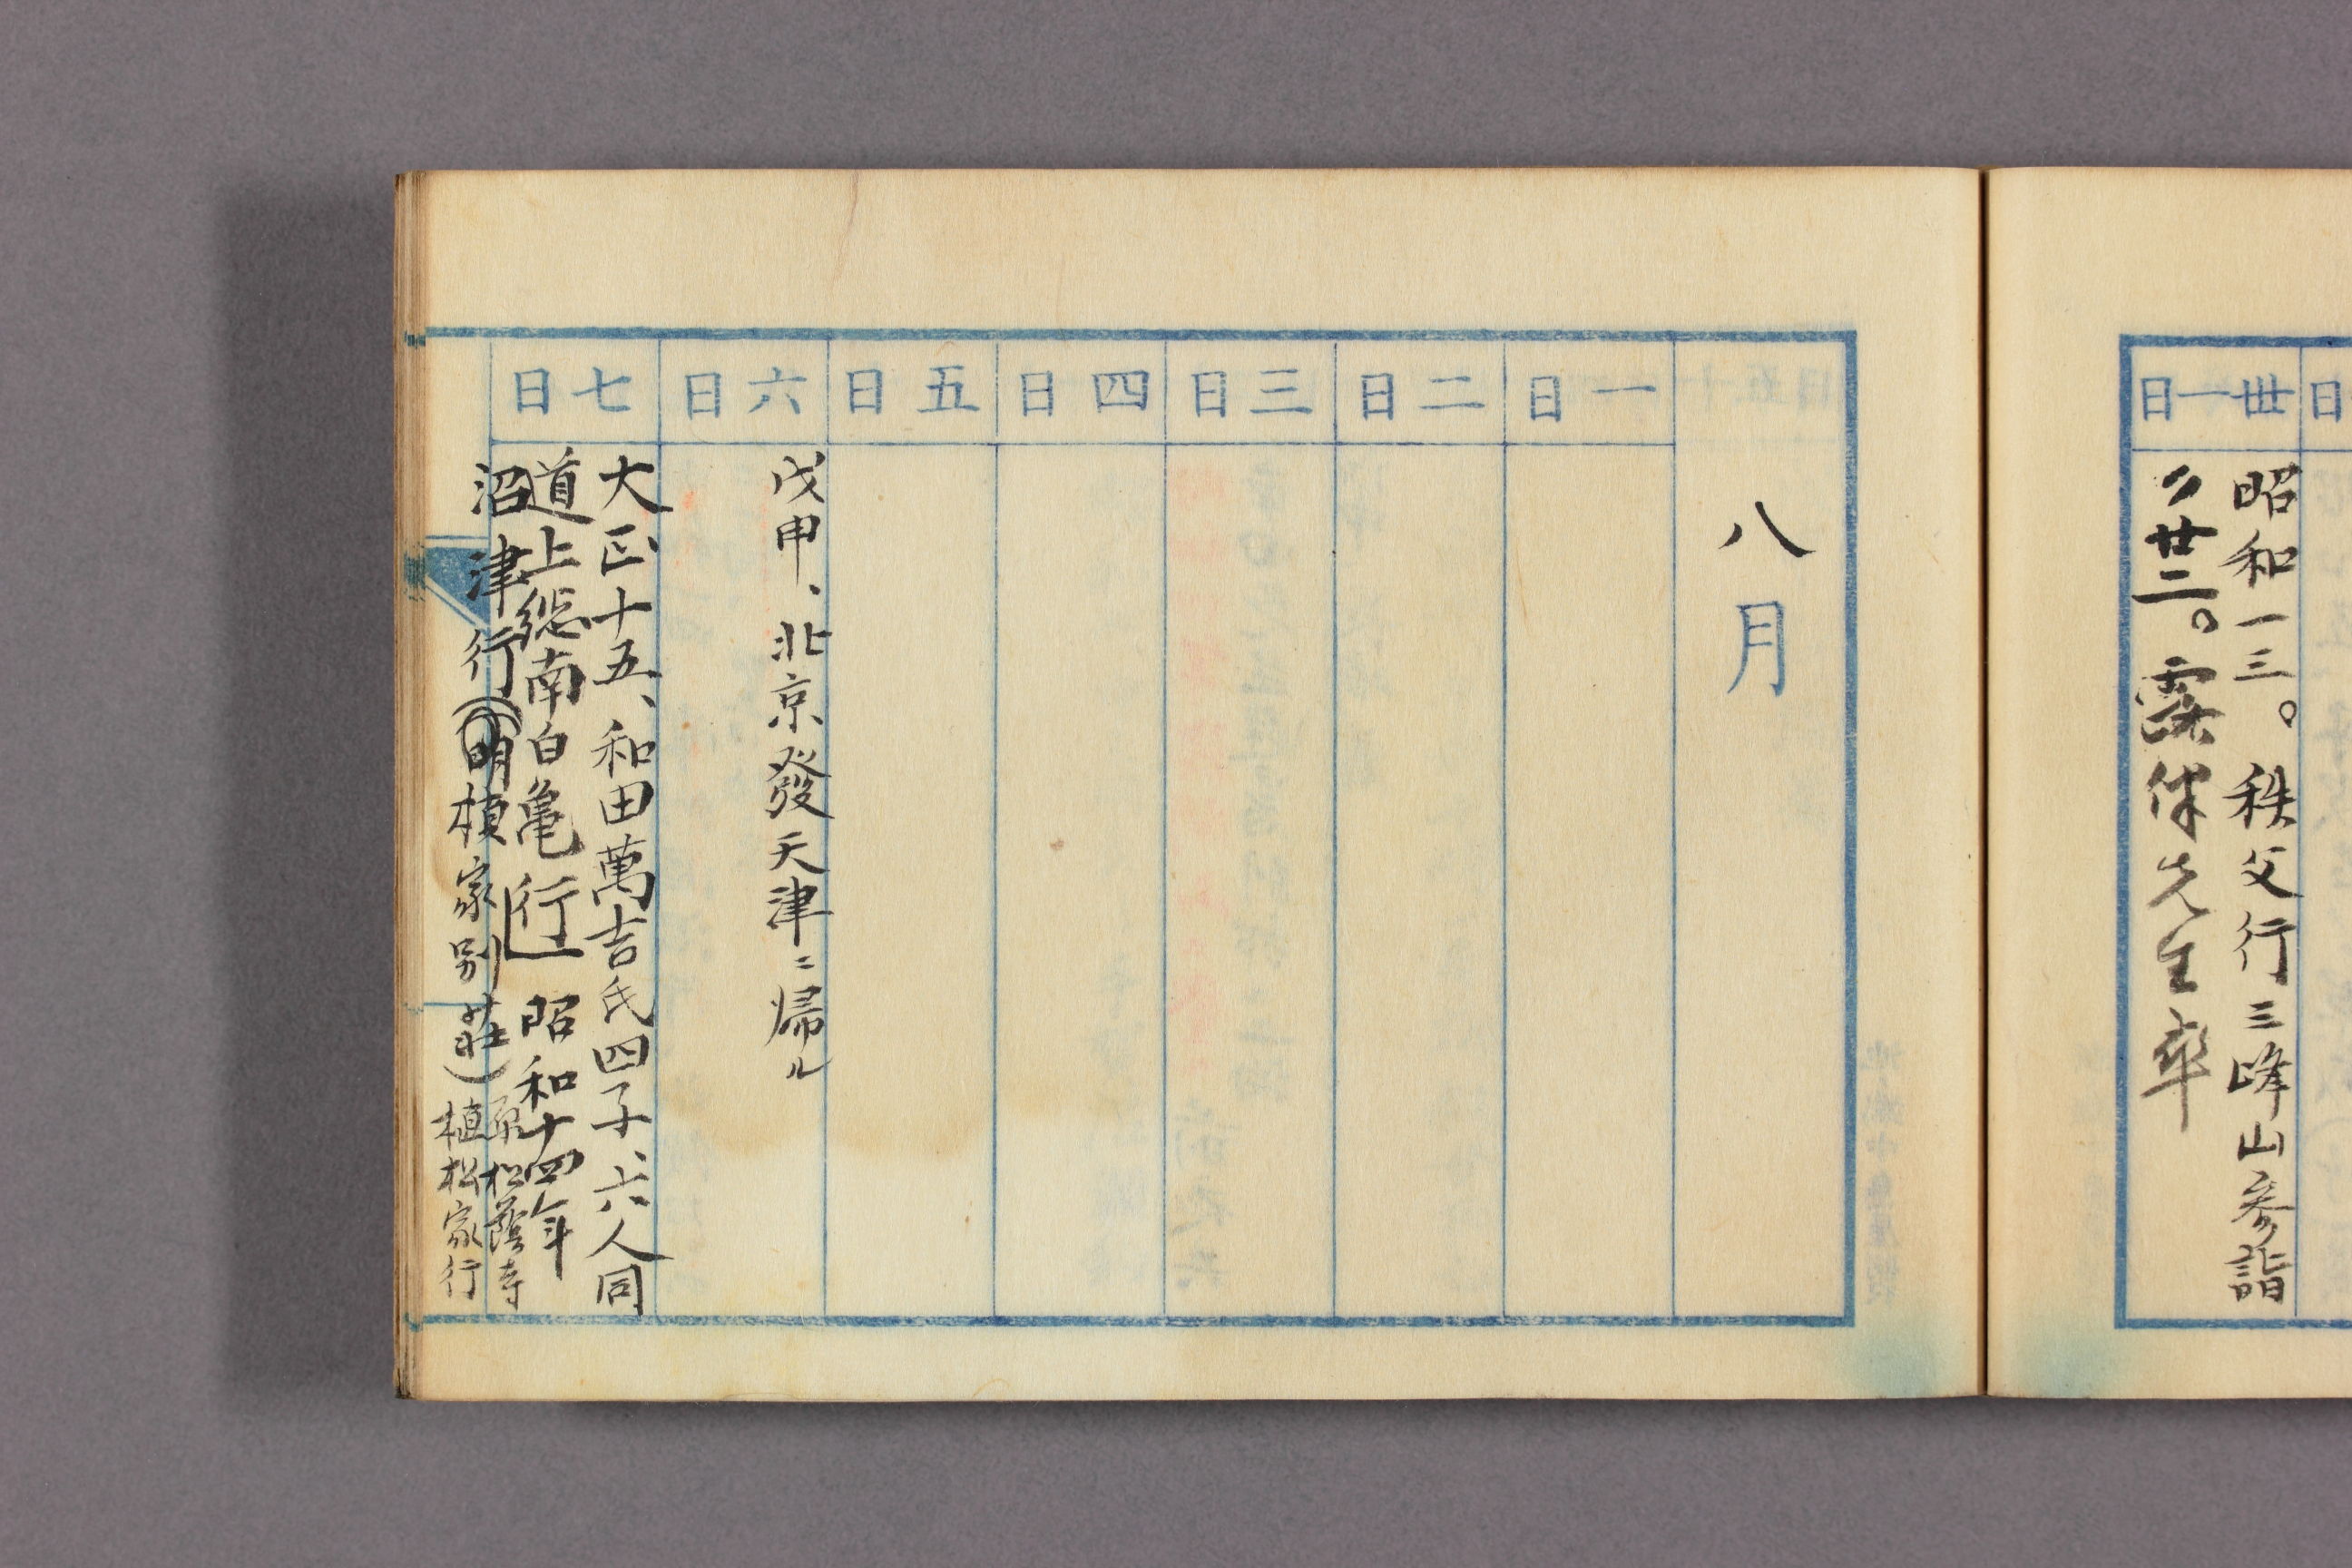 日
卅一日
昭和一三。秩父行三峰山参詣
〃廿二。露伴先生卒
八月
一日
二日
三日
四日
五日
六日
戊申、北京發天津ニ帰ル
七日
大正十五、和田萬吉氏四子、六人同
道上総南白亀行」昭和十四年
沼津行(明楨家別莊)原松蔭寺
植松家行